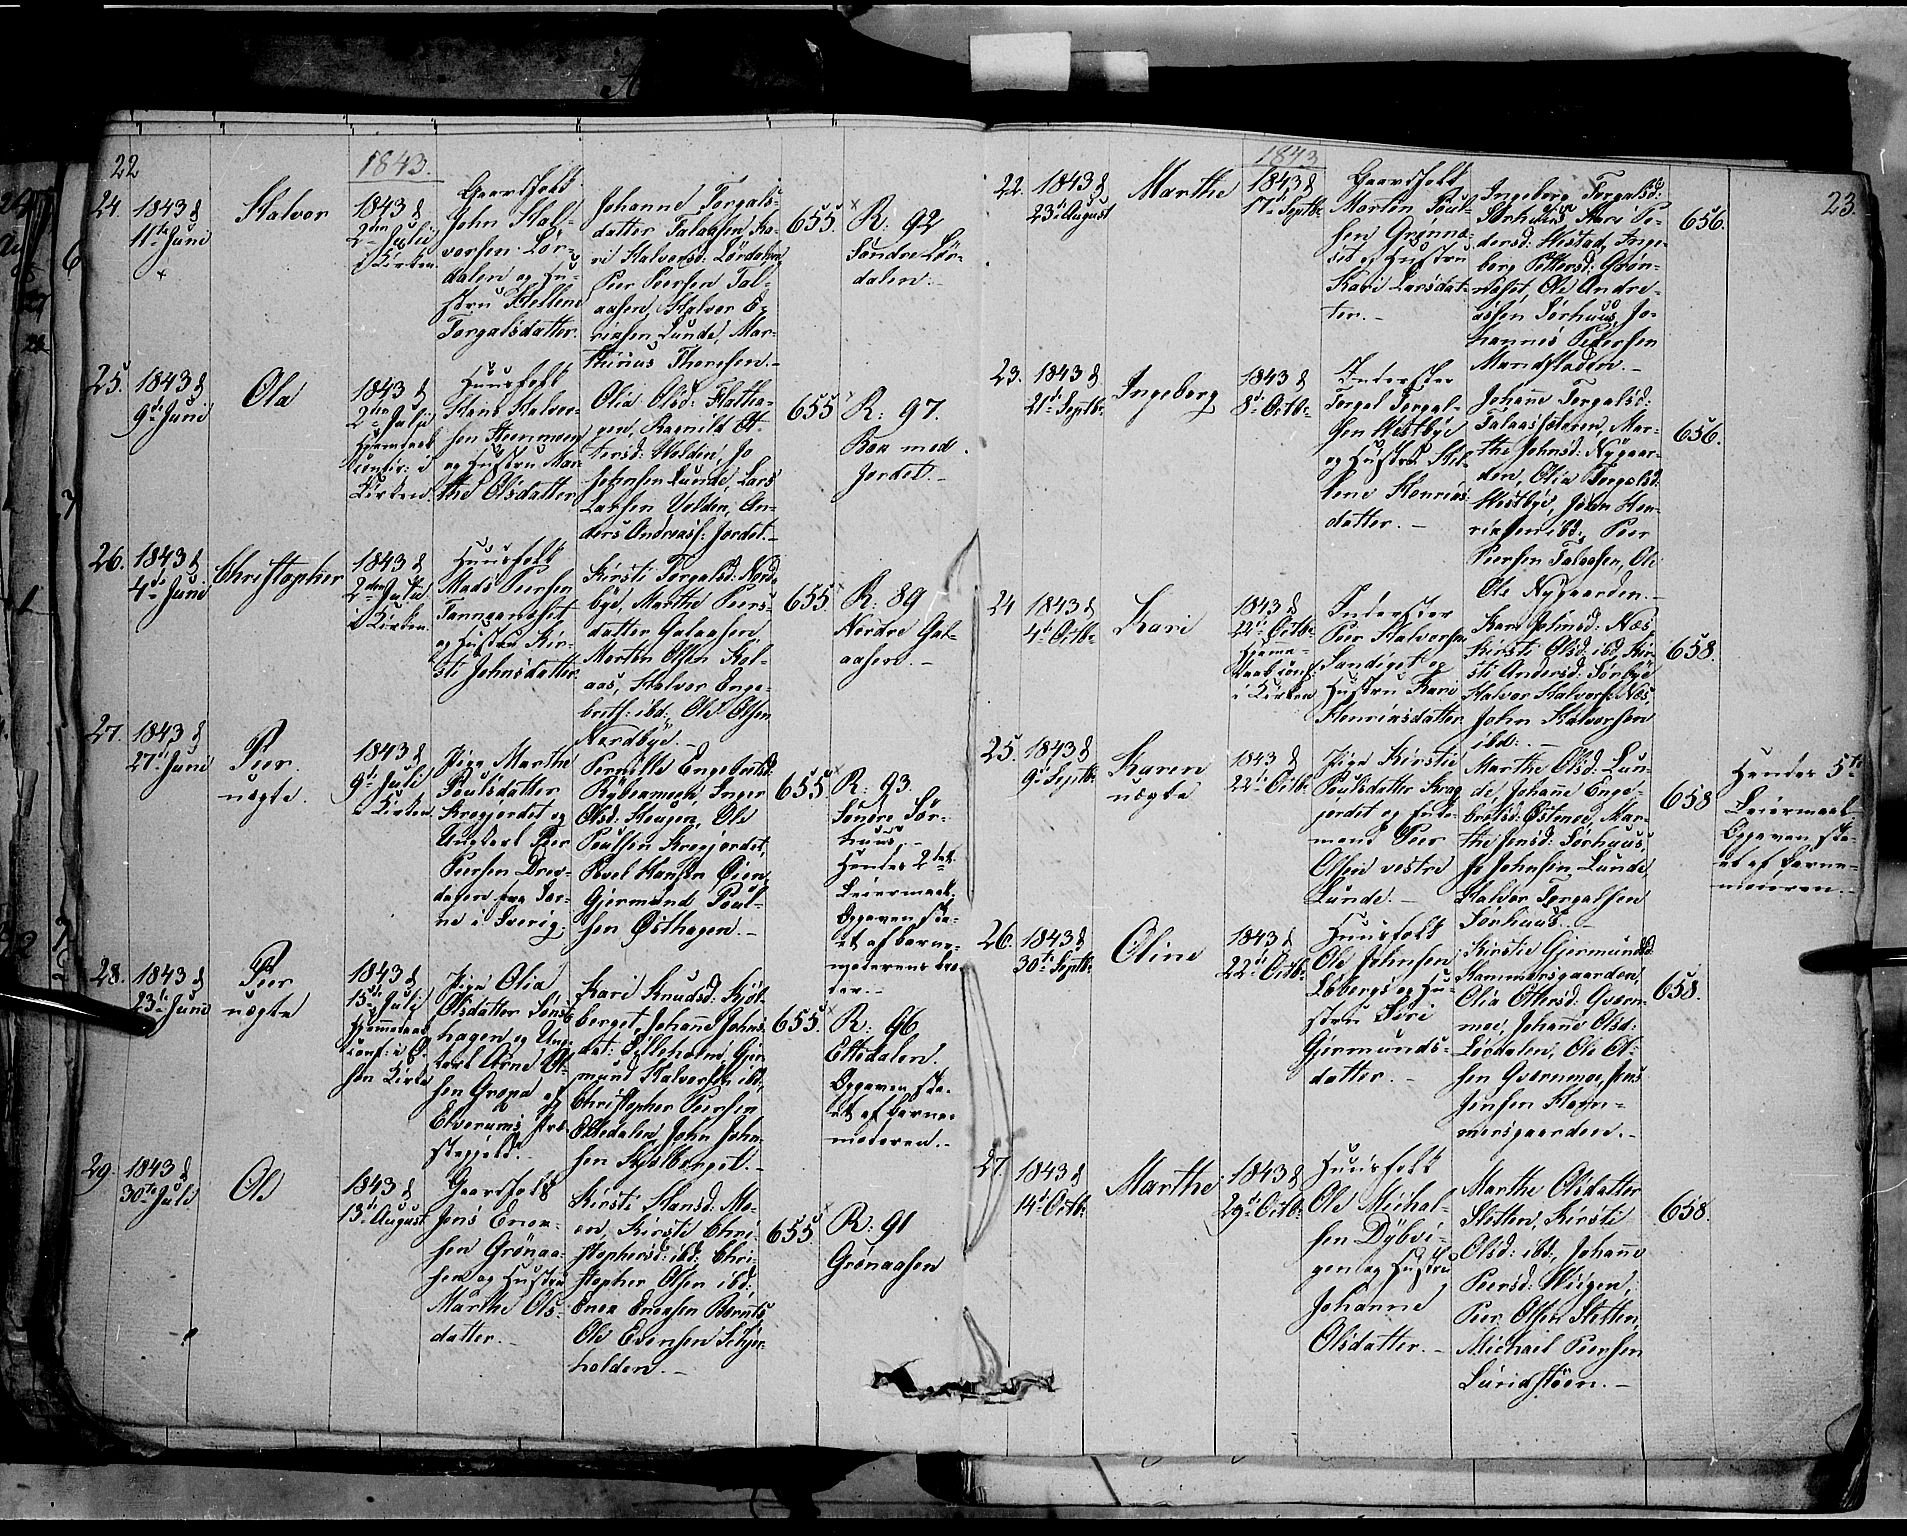 22
1843.
24.
1843 d
11te Juni
Halvor
1843 d
2den Juli
i Kirken.
Gaardfolk
John Hal-
vorsen Lør-
dalen og Hu-
stru Helline
Torgalsdatter.
Johanne Torgals-
datter Galaasen, Ka-
ri Halvorsd: Lørdalen,
Peer Peersen Gal-
aasen, Halvor E-
riksen Lunde, Mar-
thinus Thoresen.-
655.
R: 92
Søndre Lør-
dalen.-
25.
1843 d
9de Juni
Ola
1843 d
2den Juli
Hjemdøbt
confir: i
Kirken
Huusfolk
Hans Halvor-
sen Steenmoen
og Hustru Mar-
the Olsdatter
Olia Olsd: Flatha-
gen, Ragnild Ot-
tersd: Volden, Jo
Johnsen Lunde, Lars
Larsen Volden, An-
ders Andreass: Jordet.-
655
R: 97.
Boer med
Jordet.-
26.
1843 d
4de Juni
Christopher
1843 d
2den Juli
i Kirken.
Huusfolk
Mads Peersen
Tannaaneset
og Hustru Kir-
sti Johnsdatter
Kirsti Torgalsd: Nord-
bye, Marthe Peers-
datter Galaasen,
Morten Olsen Gal-
aas, Halvor Enge-
brets: ibd: Ole Olsen
Nordbye.-
655
R: 89
Nordre Gal-
aasen.-
27.
1843 d
27de Juni
Peer
uægte.
1843 d
9de Juli
i Kirken.
Pige Marthe
Poulsdatter
Krogjordet og
Ungkarl Peer
Peersen Drev-
dalen fra Ser-
ne i Sverig.
Pernille Engebretsd:
Rybermoen, Inger
Olsd: Haugen, Ole
Poulsen Krogjordet,
Povel Hansen Øien,
Gjermund Poul-
sen Østhagen.-
655
R: 93.
Søndre Sør-
huus.-
Hendes 2det
Leiermaal.
Opgaven ska-
et af barne-
moderens bro-
der.-
28.
1843 d
23de Juni
Peer
uægte
1843 d
15de Juli
Hjemmedøbt
conf: i O-
sen Kirke
Pige Olia
Olsdatter Sønst-
hagen og Ung-
karl Arne Ol-
sen Grona af
Elverums Præ-
stegjeld.-
Kari Knudsd: Kjøl-
berget, Johanne Johns-
dat: Elleholm, Gjer-
mund Halvorsen ibd,
Christopher Peersen
Eltedalen, John John-
sen Kjølberget.-
655.
R: 96
Eltedalen.
Opgaven ska-
et af barne-
moderen.-
29.
1843 d
30te Juli
Ole
1843 d
13de August
Gaardfolk
Jens Enon-
sen Grønaa-
sen og Hustru
Marthe Ols-
datter.-
Kirsti Hansd: Mo-
en, Kirsti Chri-
stophersd: ibd: Chri-
stopher Olsen ibd,
Enon Enonsen Bernts,
Ole Evensen Skjær-
holden.-
655
R: 91
Grønaasen
1843
23.
22.
1843 d
23de August
Marthe
1843 d
17de Septbr.
Gaardfolk
Morten Poul-
sen Grønna-
set og Hustru
Kari Larsdat-
ter.-
Ingeborg Torgalsd:
Sørhuus, Kari Pe-
dersd: Nestad, Inge-
borg Pettersd: Grøn-
naset, Ole Andre-
assen Sørhuus, Jo-
hannes Pedersen
Mandfloden.-
656.
23.
1843 d
21de Septbr.
Ingeborg
1843 d
8de Octbr.
Inderster
Torgal Torgal-
sen Westbye
og Hustru Hel-
lene Henriks-
datter.-
Johane Torgalsd:
Galaassæteren, Mar-
the Johnsd: Nygaar-
den, Olia Torgalsd:
Westbye, John Hen-
riksen ibd., Peer
Peersen Galaasen, Ole
Ols Nygaarden.-
656.
24
1843 d
4de Octbr.
Kari
1843 d
22de Octbr.
Hjemme-
døbt conf
i Kirken
Inderster
Peer Halvorsen
Sandiget og
Hustru Kari
Henriksdatter
Kari Johnsd: Næs
Kirsti Olsd: ibd, Kir-
sti Andersd: Sørbye
Halvor Halvors: Næs,
John Halvorsen
ibd:.-
658.
25.
1843 d
9de Septbr.
Karen
uægte
1843 d
22de Octbr.
Pige Kirstie
Poulsdatter Krog-
jordet og Enke-
mand Peer
Olsen vestre
Lunde.-
Marthe Olsd: Lun-
de, Johanne Enge-
bretsd: Østmoe, Mar-
the Jensd: Sørhuus,
Jo Johnsen Lunde,
Halvor Torgalsen
Sørhuus.-
658
Hendes 5te
Leiermaal.
Opgaven ska-
et af barne-
moderen.-
26.
1843 d
30te Septbr.
Oline
1843 d
22de Octbr.
Huusfolk
Ole Johnsen
Løberg og Hu-
stru Siri
Gjermunds-
datter.-
Kirstie Gjermundsd:
Hammersgaarden,
Olia Ottersd: Gværn-
moe, Johane Olsd:
Lørdalen, Ole Ol-
sen Gværnmoe, Jens
Jensen Ham-
mersgaarden.-
658.
27
1843 d
14de Octbr.
Marthe
1843 d
29de Octbr.
Huusfolk
Ole Michal-
sen Dybvi-
gen og Hustru
Johanne
Olsdatter.-
Marthe Olsdatter
Sletten, Kirsti
Olsd: ibd, Johanne
Peersd: Wiigen,
Peer Olsen Sletten,
Michael Peersen
Lundstøen.-
658.